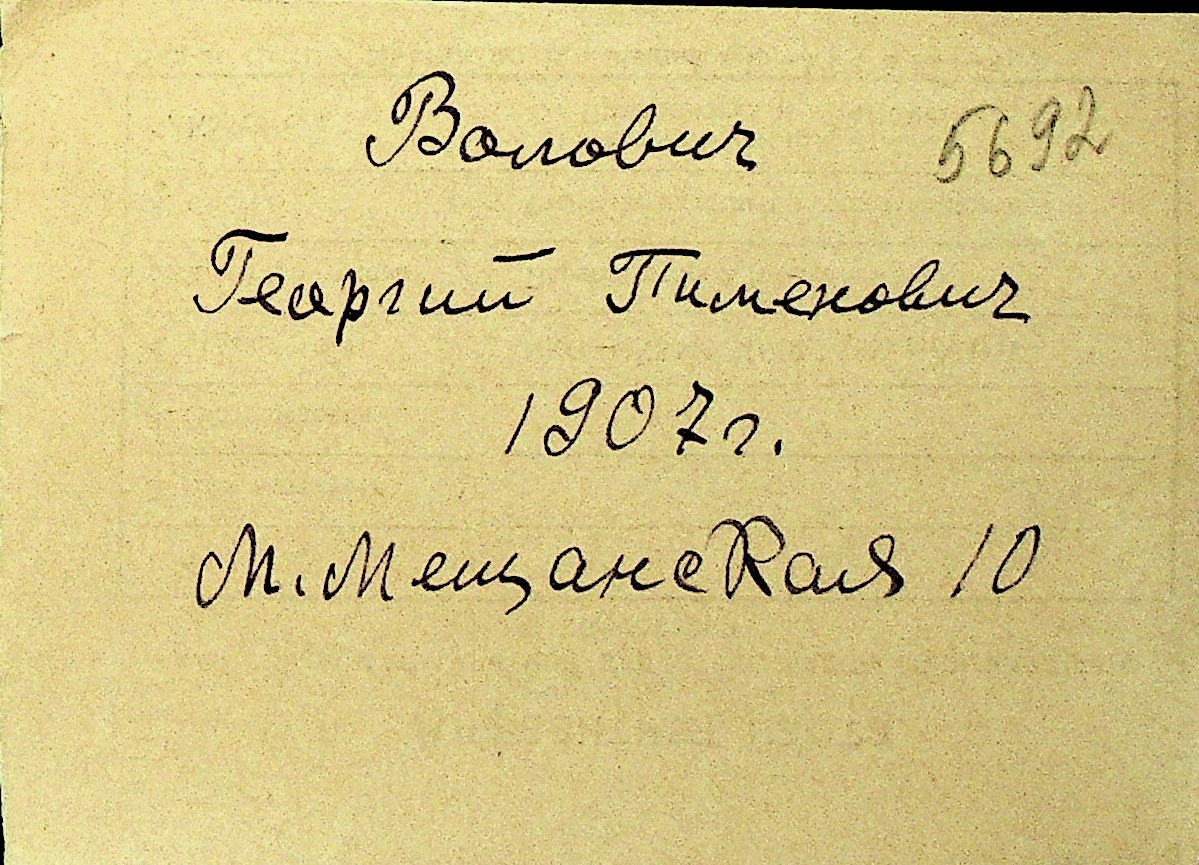 Волович 5692
Георгий Пименович
1907г.
М. Мещанская 10